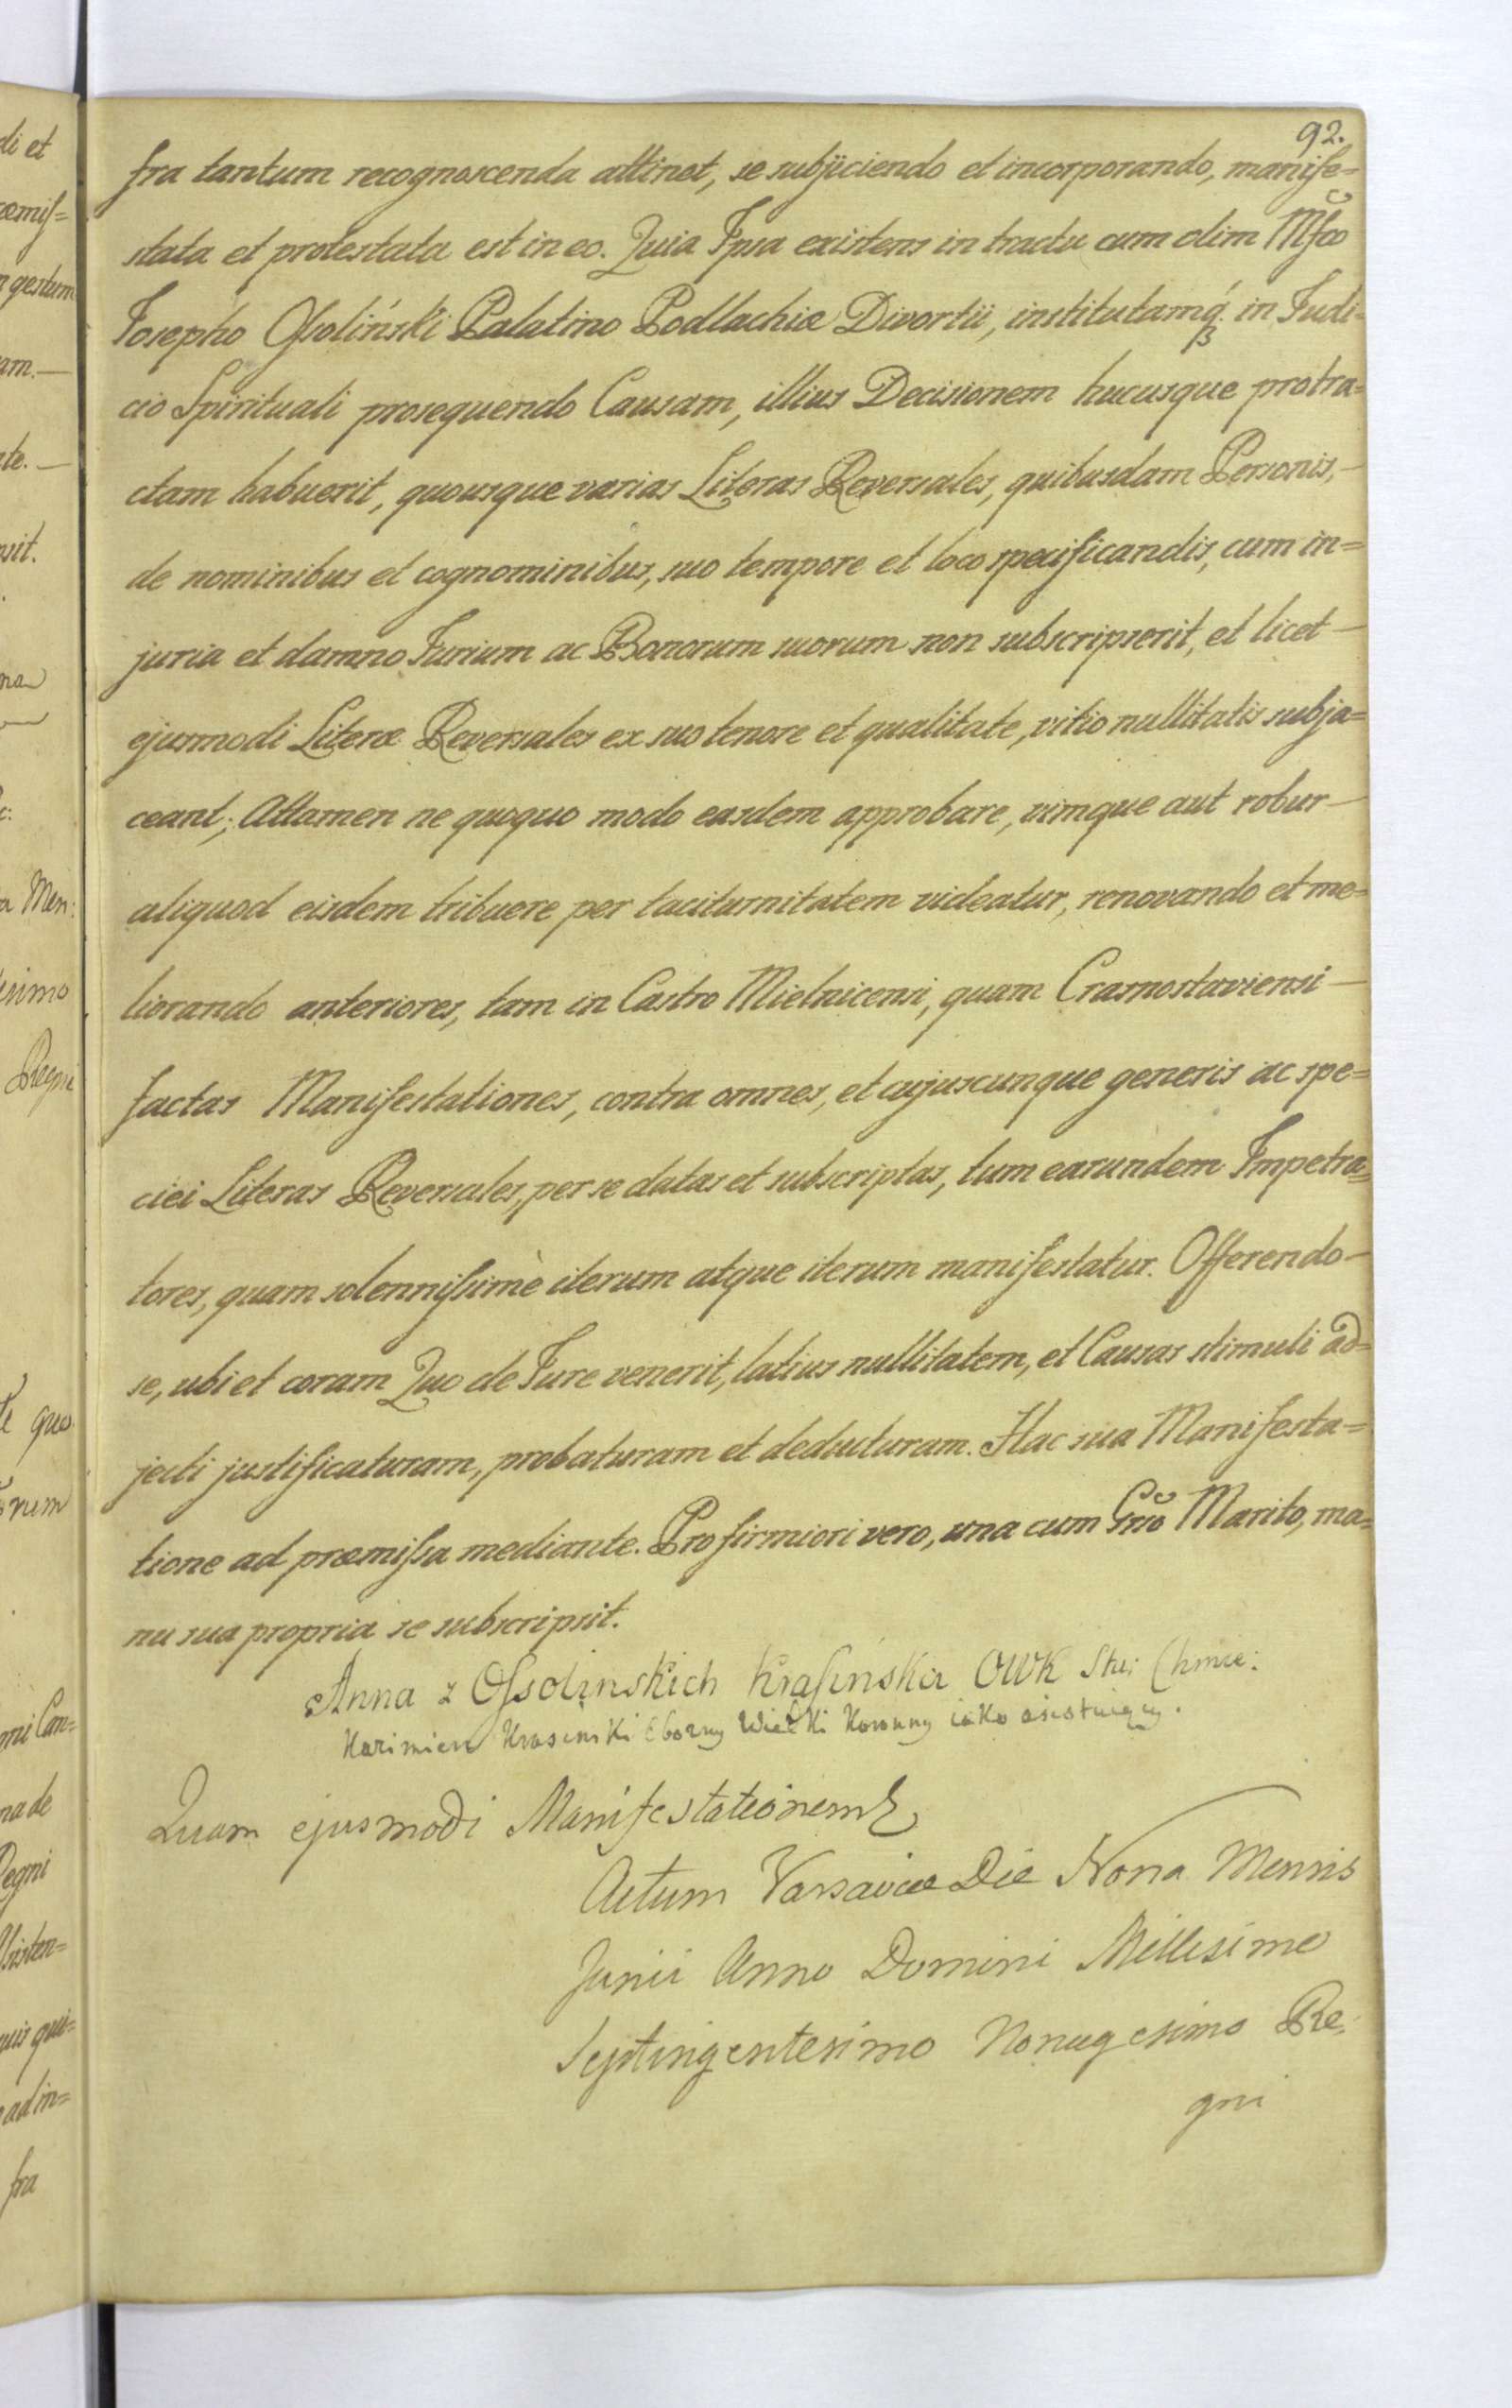 92.
fra tantum recognoscenda attinet, se subjiciendo et incorporando, manife=
stata et protestata est in eo. Quia Ipsa existens in tractu cum olim Mfco
Josepho Ossoliński Palatino Podlachiæ Divortii, institutamq́ꝫ in Judi=
cio Spirituali prosequendo Causam, illius Decisionem hucusque protra=
ctam habuerit, quousque varias Literas Reversales, quibusdam Personis,—
de nominibus et cognominibus, suo tempore et loco specificandis, cum in=
juria et damno Jurium ac Bonorum suorum non subscripserit, et licet—
ejusmodi Literæ Reversales ex suo tenore et qualitate, vitio nullitatis subja=
ceant; Attamen ne quoquo modo easdem approbare, vimque aut robur—
aliquod eisdem tribuere per taciturnitatem videatur, renovando et me=
liorando anteriores, tam in Castro Mielnicensi, quam Crasnostaviensi—
factas Manifestationes, contra omnes, et cujuscunque generis ac spe=
ciei Literas Reversales, per se datas et subscriptas, tum earundem Impetra=
tores, quam solennissimè iterum atque iterum manifestatur. Offerendo—
se, ubi et coram Quo de Jure venerit, latius nullitatem, et Causas stimuli ad=
jecti justificaturam, probaturam et deducturam. Hac sua Manifesta=
tione ad præmissa mediante. Pro firmiori vero, una cum Gnō Marito, ma=
nu sua propria se subscripsit.
Anna z Ossolinskich Krasińska OWK Stu: Chmie:
Kazimierz Krasinski Obozny Wielki Koronny iako asistuiący.
Quam ejusmodi Manifestationem
Actum Varsaviæ Die Nona Mensis
Junii Anno Domini Millesimo
Septingentesimo Nonagesimo Re=
gni